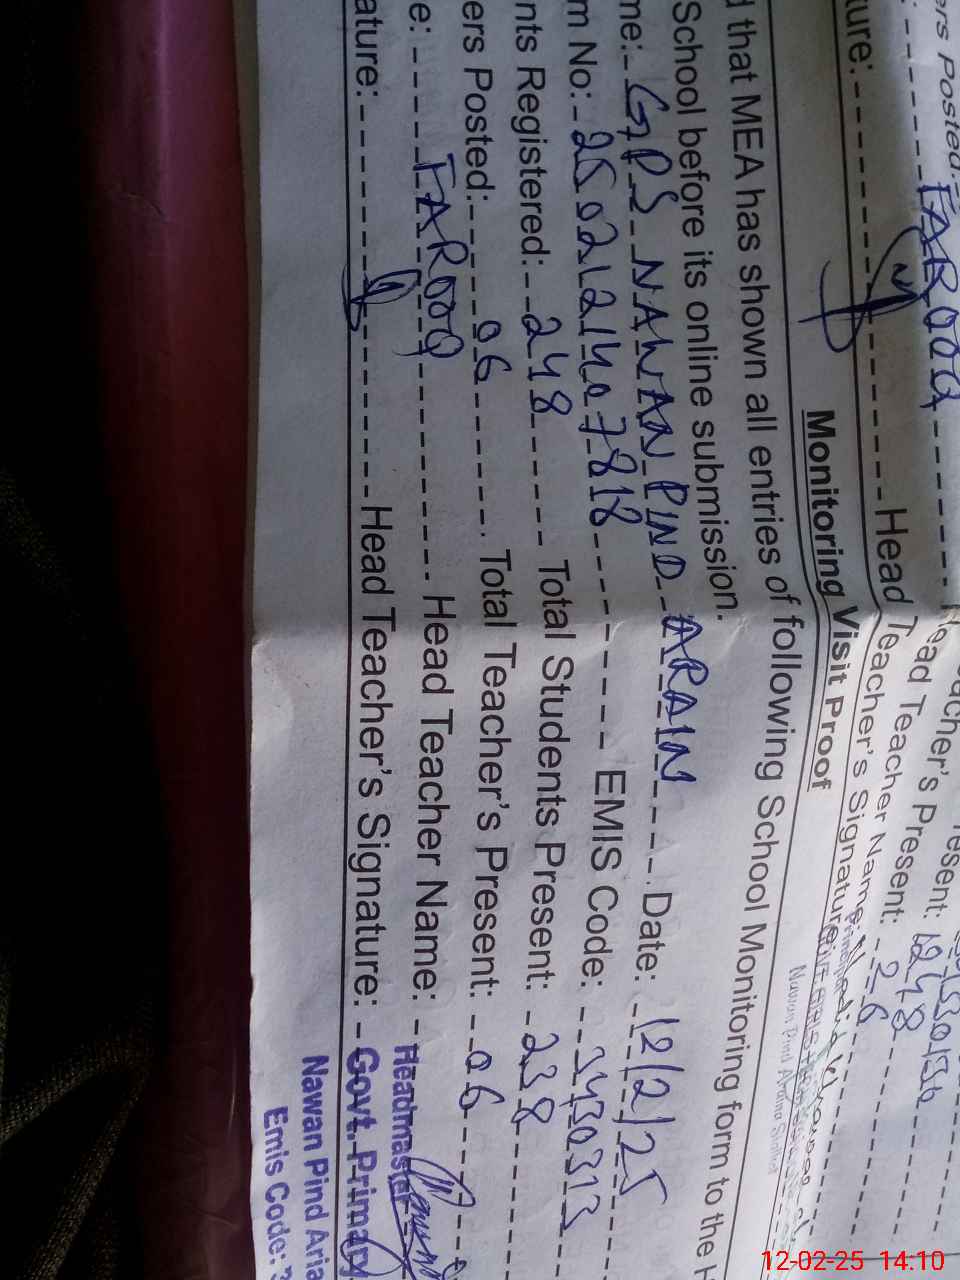 ers Posted:
FAROOQ
ture: Head Teacher's Signature:
Teacher's Present: 248
Head Teacher Present: 26
Teacher Name:
Monitoring Visit Proof
d that MEA has shown all entries of following School Monitoring form to the H
School before its online submission.
me: GPS NAWAN PIND ARAIN Date: 12/2/25
m No: 2502121407818 EMIS Code: 34330313
nts Registered: 248 Total Students Present: 238
ers Posted: 06 Total Teacher's Present: 06
e: FAROOQ Head Teacher Name:
ature: Head Teacher's Signature:
Headmaster
Govt. Primary
Nawan Pind Aria
Emis Code: 3
12-02-25 14:10